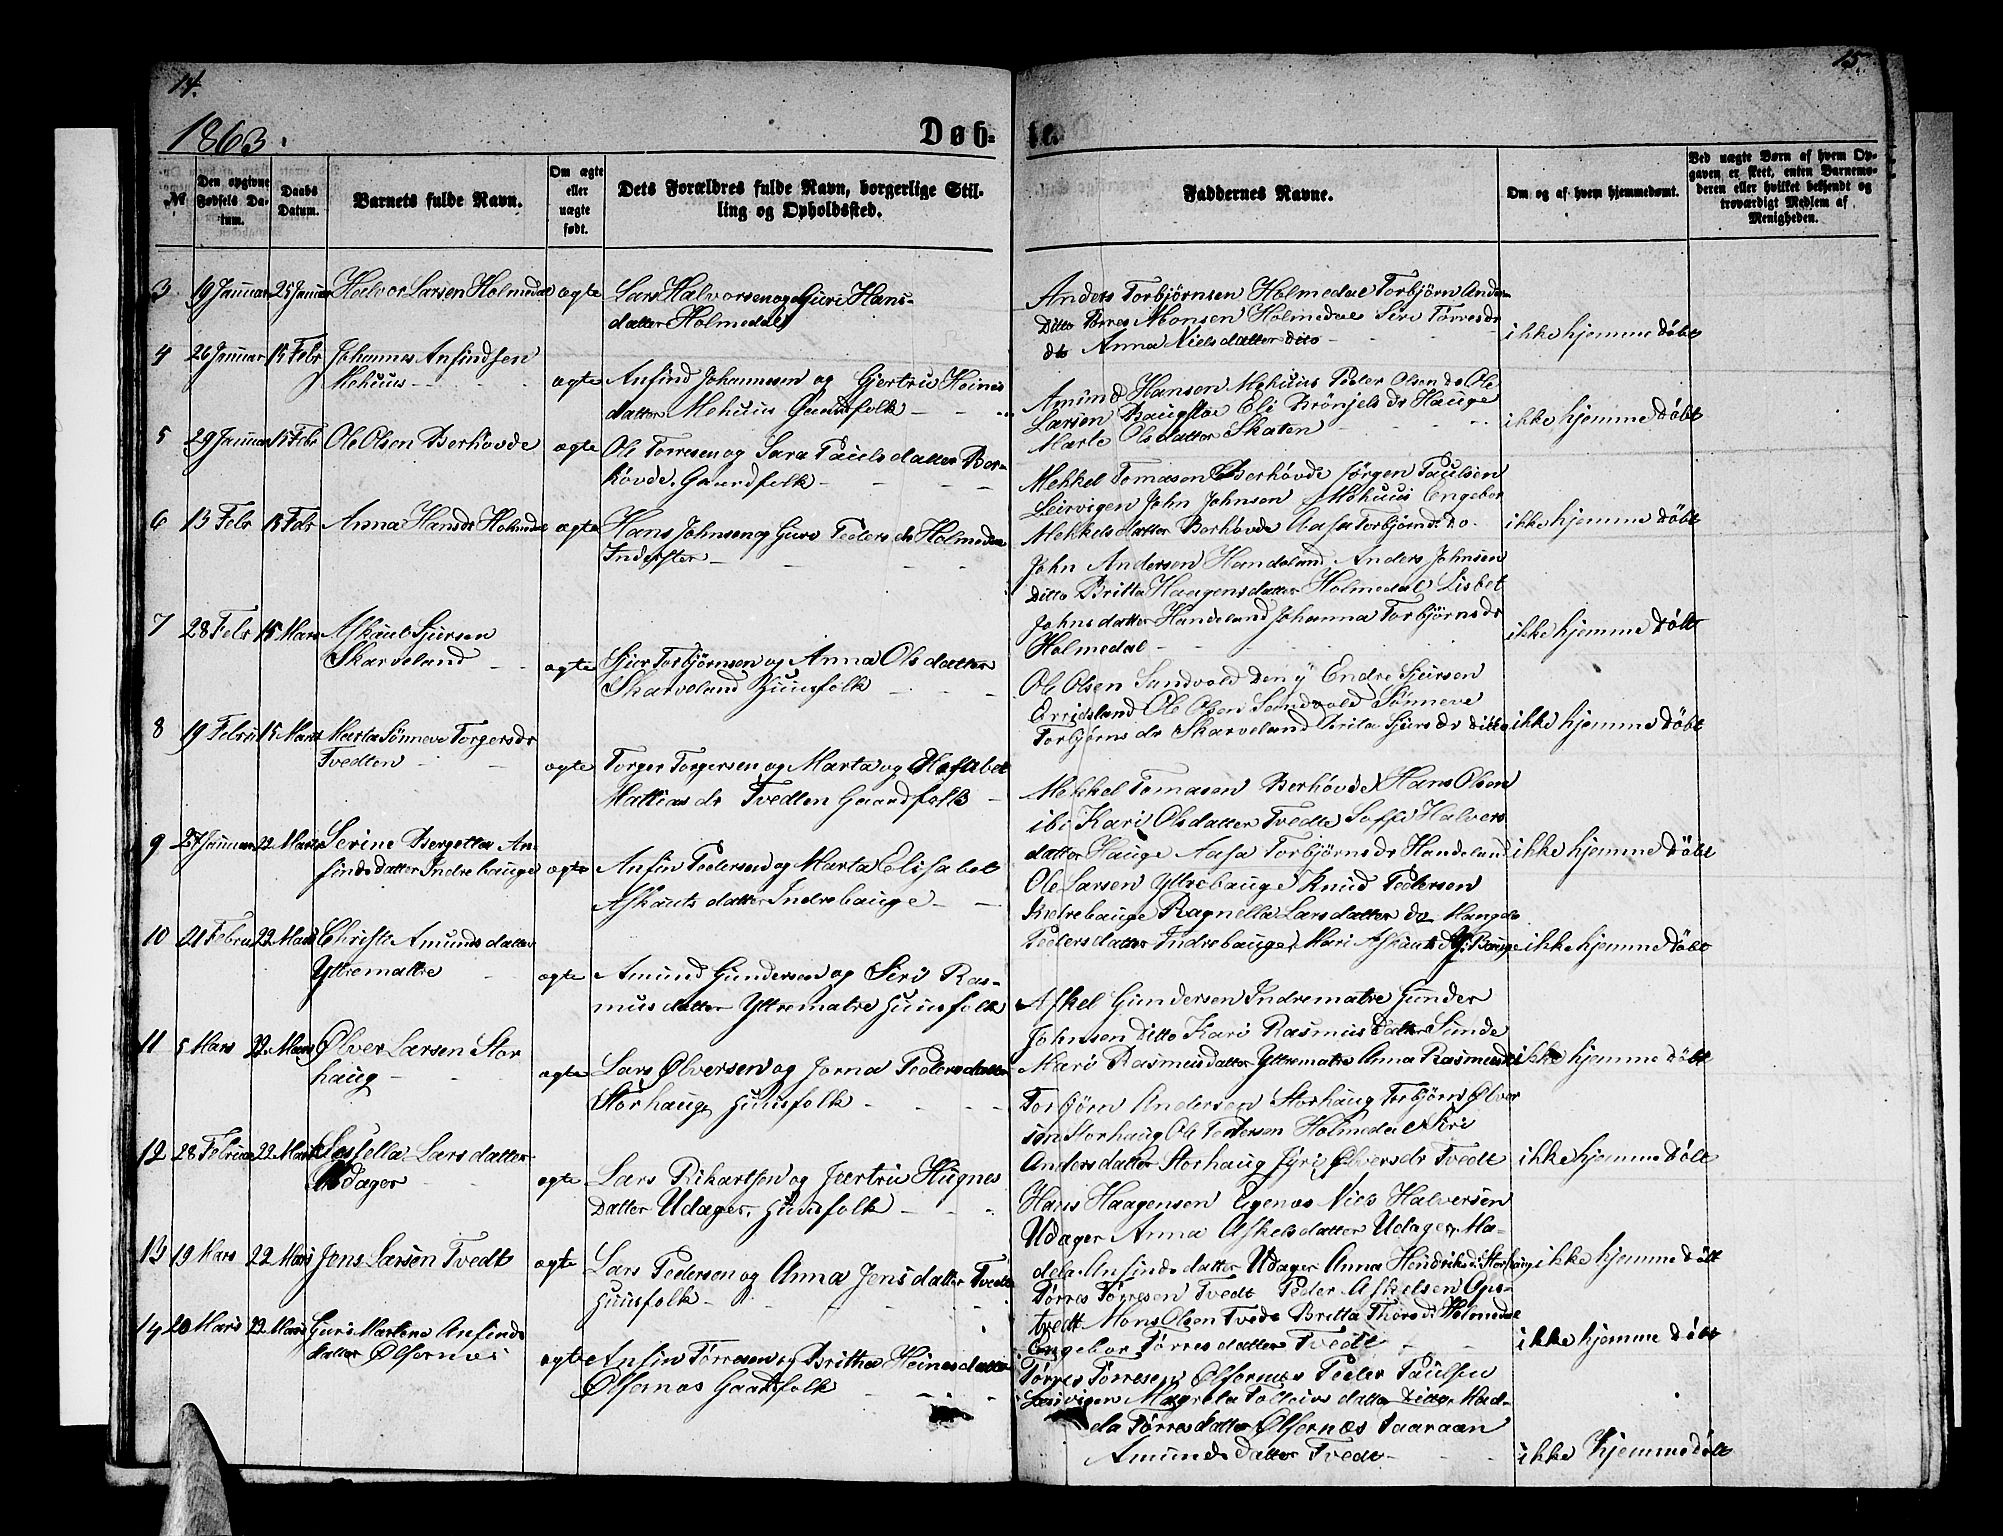 14.
15.
1863.
Døb-
te.
№
Den opgivne Fødsels Datum.
Daabs Datum.
Barnets fulde Navn.
Om ægte eller uægte født.
Dets Forældres fulde Navn, borgerlige Stilling og Opholdssted.
Faddernes Navne.
Om og af hvem hjemmedøbt.
Ved uægte Børn af hvem Opgaven er skeet, enten Barnemoderen eller hvilket bekjendt og troværdigt Medlem af Menigheden.
3 19 Januar 25 Januar Halvor Larsen Holmedal ægte Lars Halvorsen og Guri Hans-
datter Holmedal
Anders Torbjørnsen Holmedal Torbjørn Anders
Ditto Tørres Monsen Holmedal Siri Tørresdr
do Anna Nielsdatter dito - ikke hjemme døbt
4 26 Januar 15 Febr Johannes Anfindsen
Mehuus - - ægte Anfind Johannesen og Gjertru Heines
datter Mehuus Gaardfolk - -
Amund Hansen Mehuus Peder Olsen do Ole
Larsen Baugstøe Eli Brönjels dr Hauge
Marte Olsdatter Skaten - - ikke hjemme døbt
5 29 Januar 15 Febr Ole Olsen Berhövde ægte Ole Torresen og Sara Pauls datter Ber-
hövde Gaardfolk - - -
Mekkel Tomasen Berhövde Jørgen Paulsen
Leirvigen John Johnsen Mehuus Engebor
Mekkelsdatter Berhövde Aasa Torbjørnsd do - ikke hjemme døbt
6 13 Febr 15 Febr Anna Hansdr Holmedal ægte Hans Johnsen og Guro Peders dr Holmedal
Inderster - - -
John Andersen Handeland Anders Johnsen
Ditto Britta Haagensdatter Holmedal Lisbet
Johnsdatter Handeland Johanna Torbjørnsdr
Holmedal - - - ikke hjemme døbt
7 28 Febr 15 Mars Askaut Sjursen
Skarveland - - ægte Sjur Torbjörnsen og Anna Olsdatter
Skarveland Huusfolk - - -
Ole Olsen Sandvold den y Endre Sjursen
Erridsland Ole Olsen Sandvold Sönneve
Torbjørnsdr Skarveland Brita Sjursdr ditto ikke hjemme døbt
8 19 Febru 15 Mars Marta Sönneve Torgersdr
Tvedten - - ægte Torger Torgersen og Marta og Elisabet
Mattias dr Tvedten Gaardfolk -
Mekkel Tomasen Berhövde Hans Olsen
ibi Kari Olsdatter Tvedte Soffi Halvers
datter Hauge Aasa Torbjørnsdr Handeland ikke hjemme døbt
9 27 Januar 22 Mars Serine Bergette An-
findsdatter Indrebauge ægte Anfin Pedersen og Marta Elisabet
Askauts datter Indrebauge - -
Ole Larsen Yttrebauge Knud Pedersen
Indrebauge Ragnella Larsdatter do Mangele
Pedersdatter Indrebauge, Mari Askauts d Y. Bauge ikke hjemme døbt
10 21 Febru 22 Mars Christi Amundsdatter
Yttremattre - ægte Amund Gundersen og Siri Ras-
mus datter Yttrematre Huusfolk
Askel Gundersen Indrematre Gunder
Johnsen Ditto Kari Rasmusdatter Sunde
Mari Rasmusdatter Yttrematre Anna Rasmusd ikke hjemme døbt
11 5 Mars 22 Mars Ølver Larsen Stor
haug - - ægte Lars Ølversen og Jorna Pedersdatter
Storhaug Huusfolk - - -
Torbjørn Andersen Storhaug Torbjörn Ølver
sen Storhaug Ole Pedersen Holmedal Siri
Andersdatter Storhaug Jyri Ølversdr Tvedt ikke hjemme døbt
12 28 Februar 22 Mars Sessella Larsdatter
Udager - ægte Lars Rikartsen og Jeertru Hugnes
Datter Udager, Huusfolk - -
Hans Haagensen Egenæs Niels Halversen
Udager Anna Askelsdatter Udager, Ma-
dela Anfindsdatter Udager Anna Hendriksd Storhaug ikke hjemme døbt
13 19 Mars 22 Mars Jens Larsen Tvedt ægte Lars Pedersen og Anna Jensdatter Tvedt
Huusfolk - - -
Tørres Tørresen Tvedt Peder Askelsen Ops-
tvedt Mons Olsen Tvedt Britta Thorsd Holmedal
Engebor Tørresdatter Tvedt - - ikke hjemme døbt
14 20 Mars 22 Mars Guri Martene Anfinds
datter Ølfernes ægte Anfin Tørresen og Britha Heinesdatter
Ølfernæs Gaardfolk - - -
Tørres Tørresen Ølfernæs Peder Paulsen
Leirvigen Magrela Tolleivsdatter Ditto Mad-
da Tørresdatter Ølfernæs Taaraan
Amunds datter Tvedt - - ikke hjemmedøbt